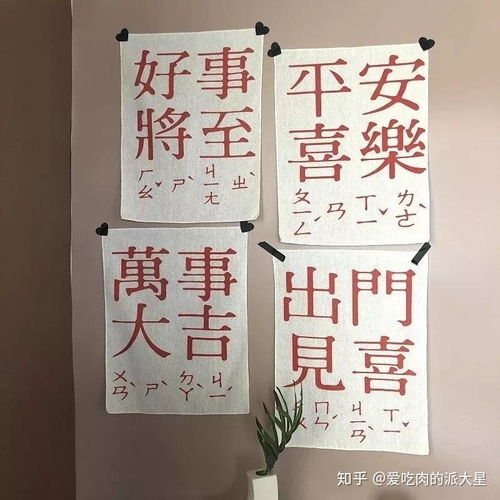 好事
將至
ㄏㄠˇ ㄕˋ ㄐㄧㄤ ㄓˋ
平安
喜樂
ㄆㄧㄥˊ ㄢ ㄒㄧˇ ㄌㄜˋ
萬事
大吉
ㄨㄢˋ ㄕˋ ㄉㄚˋ ㄐㄧˊ
出門
見喜
ㄇㄣˊ ㄐㄧㄢˋ ㄒㄧˇ
知乎 @爱吃肉的派大星